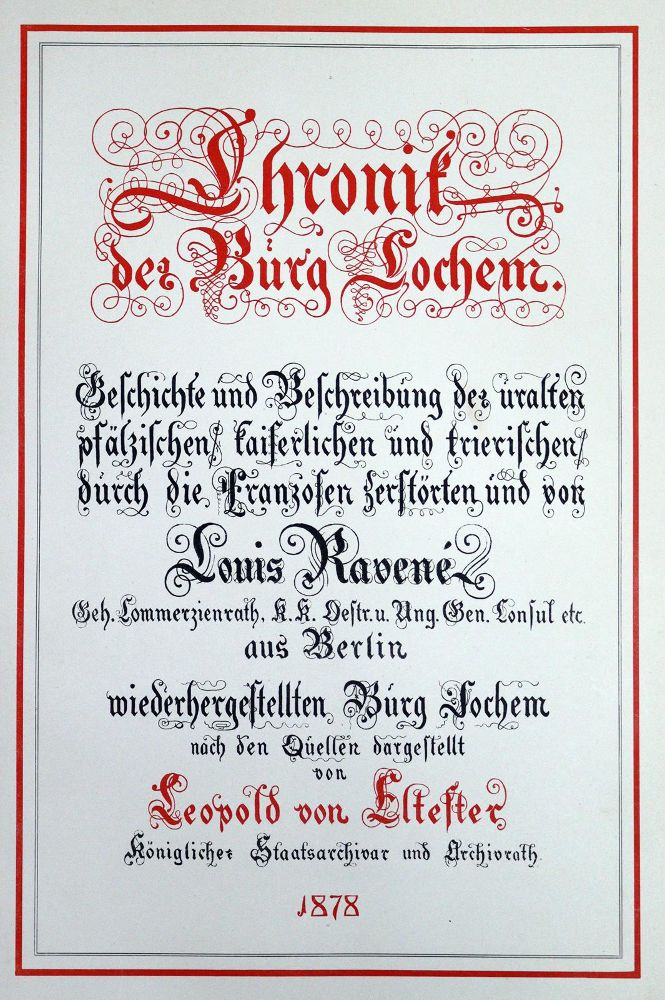 Chronik
der Burg Cochem.
Geschichte und Beschreibung der uralten
pfälzischen, kaiserlichen und trierischen,
durch die Franzosen zerstörten und von
Louis Ravené
Geh. Commerzienrath, K.K. Oestr. u. Ung. Gen. Consul etc.
aus Berlin
wiederhergestellten Burg Cochem
nach den Quellen dargestellt
von
Leopold von Eltester
Königlicher Staatsarchivar und Archivrath.
1878